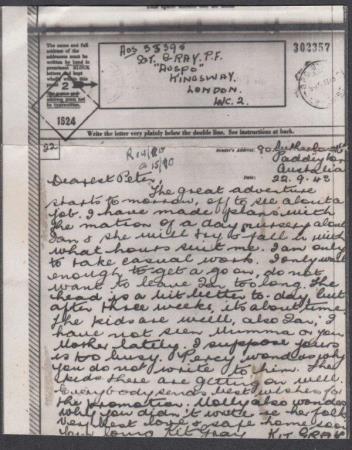 The name and full
address of the
addressee must be
written by hand in
prominent BLOCK
letters
2
1524
302357
AUS 58390
SGT. GRAY. P.F.
"AUSPO"
KINGSWAY.
LONDON.
W.C.2.
Write the letter very plainly below the double line. See instructions at back.
22
Sender's Address:
Paddington
Australia
Date: 22.9.43
Dearest Peter,
The great adventure
starts to-morrow, off to see about a
job. I have made plans with
the matron of a day nursery about
Ian & she will try to fall in with
what hours suit me. I am only
to take casual work. I only want
enough to get a goan, do not
want to leave Ian too long. The
head is a bit better to-day, but
after three weeks, it's about time.
The kids are well, also Ian, I
have not seen Mumma or your
Mother lately. I suppose yours
is too busy. Percy wonders why
you do not write to him. The
kids there are getting on well.
Everybody sends best wishes for
the promotion. Molly also wonders
why you didn't write to her folk.
Very best love & safe home soon
Your loving Kit Gray
KIT GRAY